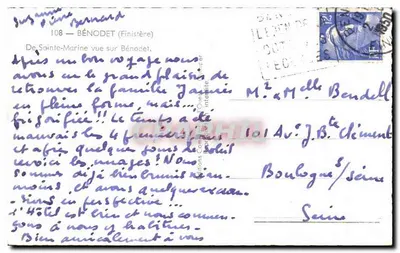 Suzanne
Pierre Bernard
108 — BÉNODET (Finistère)
De Sainte-Marine vue sur Bénodet.
Après un bon voyage nous
avons eu le grand plaisir de
retrouver la famille
en pleine forme, mais...
frigorifiée!! Le temps a été
mauvais les 4 premiers jours
et après quelques jours de soleil
revoici les nuages! Nous
sommes déjà bien brunis néan-
moins, et avons quelques excur-
sions en perspective...
L'Hôtel est bien et nous commen-
çons à nous y habituer.
Bien amicalement à vous
Mr & Melle Bendell
101 Av. J. Bte Clément
Boulogne s/Seine
Seine